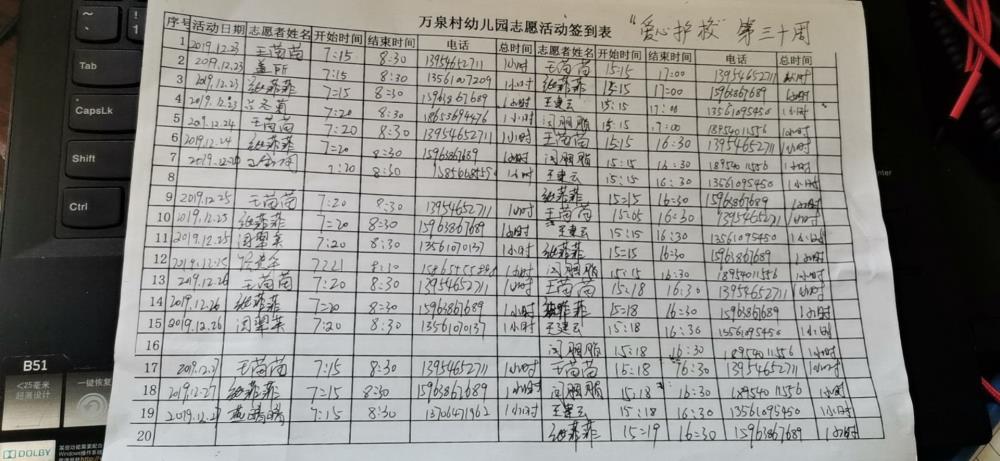 万泉村幼儿园志愿活动签到表 "爱心护校" 第三十周
序号 活动日期 志愿者姓名 开始时间 结束时间 电话 总时间 志愿者姓名 开始时间 结束时间 电话 总时间
1 2019.12.23 王苗苗 7:15 8:30 13954652711 1小时 王苗苗 15:15 17:00 13954652711 1小时
2 2019.12.23 7:15 8:30 1356107209 1小时 张菲菲 15:15 17:00 15963867689 1小时
3 2019.12.23 张菲菲 7:15 8:30 15963867689 1小时 王建云 15:15 17:00 13561095450 1小时
4 2019.12.23 7:20 8:30 18653694476 1小时 闫胭脂 15:15 17:00 18954011556 1小时
5 2019.12.24 王苗苗 7:20 8:30 13954652711 1小时 王苗苗 15:15 16:30 13954652711 1小时
6 2019.12.24 张菲菲 7:20 8:30 15963867689 1小时 闫胭脂 15:15 16:30 18954011556 1小时
7 7:20 8:30 1小时 王建云 15:15 16:30 13561095450 1小时
8 张菲菲 15:15 16:30 15963867689 1小时
9 2019.12.25 王苗苗 7:20 8:30 13954652711 1小时 王苗苗 15:05 16:30 13954652711 1小时
10 2019.12.25 张菲菲 7:20 8:30 15963867689 1小时 王建云 15:15 16:30 13561095450 1小时
11 2019.12.25 闫翠英 7:20 8:30 13561070137 1小时 张菲菲 15:15 16:30 15963867689 1小时
12 2019.12.25 7:21 8:30 1小时 闫胭脂 15:15 16:30 18954011556 1小时
13 2019.12.26 王苗苗 7:20 8:30 13954652711 1小时 王苗苗 15:18 16:30 13954652711 1小时
14 2019.12.26 张菲菲 7:20 8:30 15963867689 1小时 张菲菲 15:18 16:30 15963867689 1小时
15 2019.12.26 闫翠英 7:20 8:30 13561070137 1小时 王建云 15:18 16:30 13561095450 1小时
16 闫胭脂 15:18 16:30 18954011556 1小时
17 王苗苗 7:15 8:30 13954652711 1小时 王苗苗 15:18 16:30 13954652711 1小时
18 2019.12.27 张菲菲 7:15 8:30 15963867689 1小时 闫胭脂 15:18 16:30 18954011556 1小时
19 2019.12.27 7:15 8:30 13706471962 1小时 王建云 15:18 16:30 13561095450 1小时
20 张菲菲 15:19 16:30 15963867689 1小时
Tab
CapsLk
Shift
Ctrl
B51
<25毫米
超薄设计
一键恢复
DOLBY
Enter